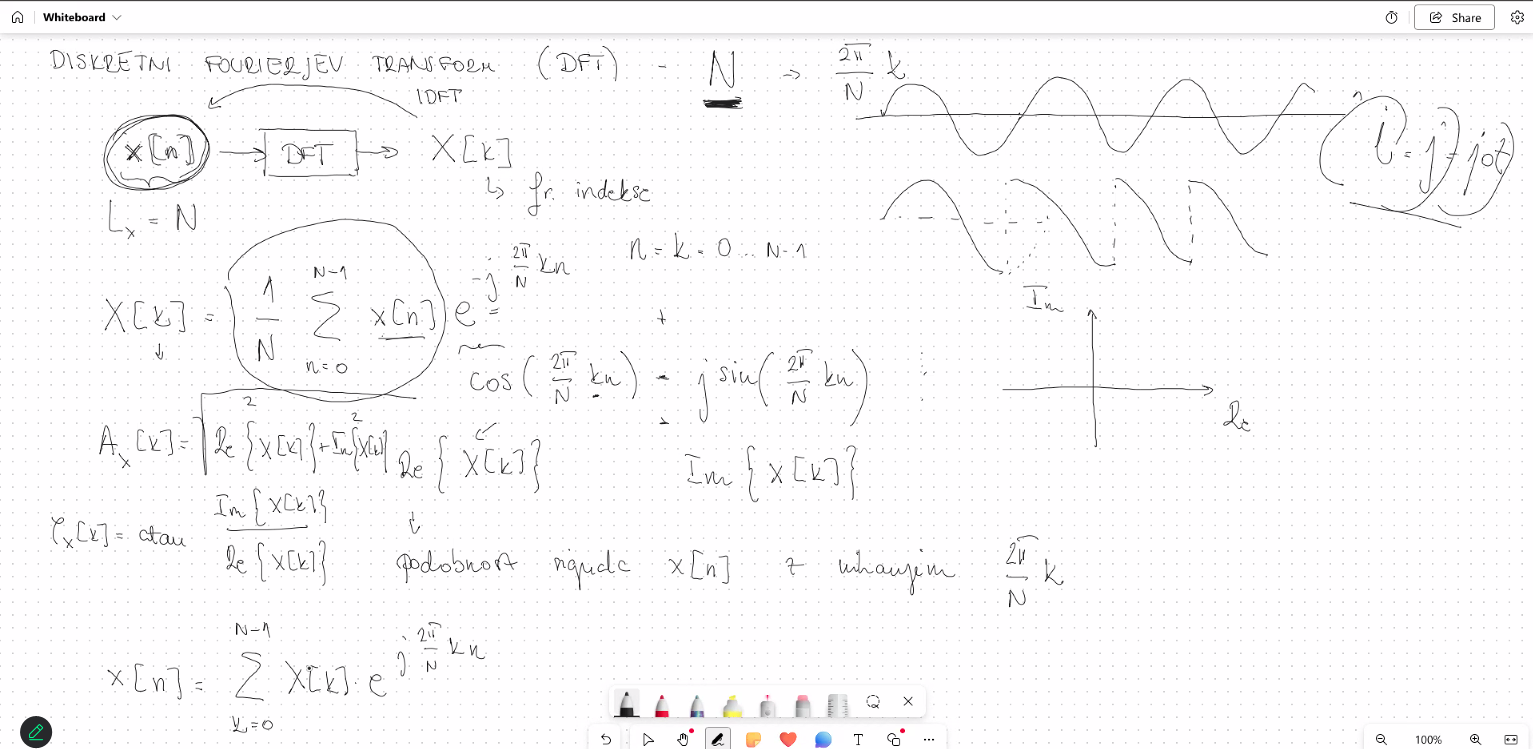 Whiteboard
Share
DISKRETNI FOURIERJEV TRANSFORM (DFT) - N → 2π/N k
IDFT
x[n] → DFT → X[k]
↳ fr. indekse
i = j = jot
L_x = N
n = k = 0 ... N-1
X[k] = 1/N Σ_{n=0}^{N-1} x[n] e^{-j 2π/N kn}
cos(2π/N kn) - j sin(2π/N kn)
Im
Re
A_x[k] = √(Re²{X[k]} + Im²{X[k]})
Re{X[k]}
Im{X[k]}
φ_x[k] = atan Im{X[k]} / Re{X[k]}
podobnost signala x[n] z nihanjem 2π/N k
x[n] = Σ_{k=0}^{N-1} X[k] · e^{j 2π/N kn}
T
100%